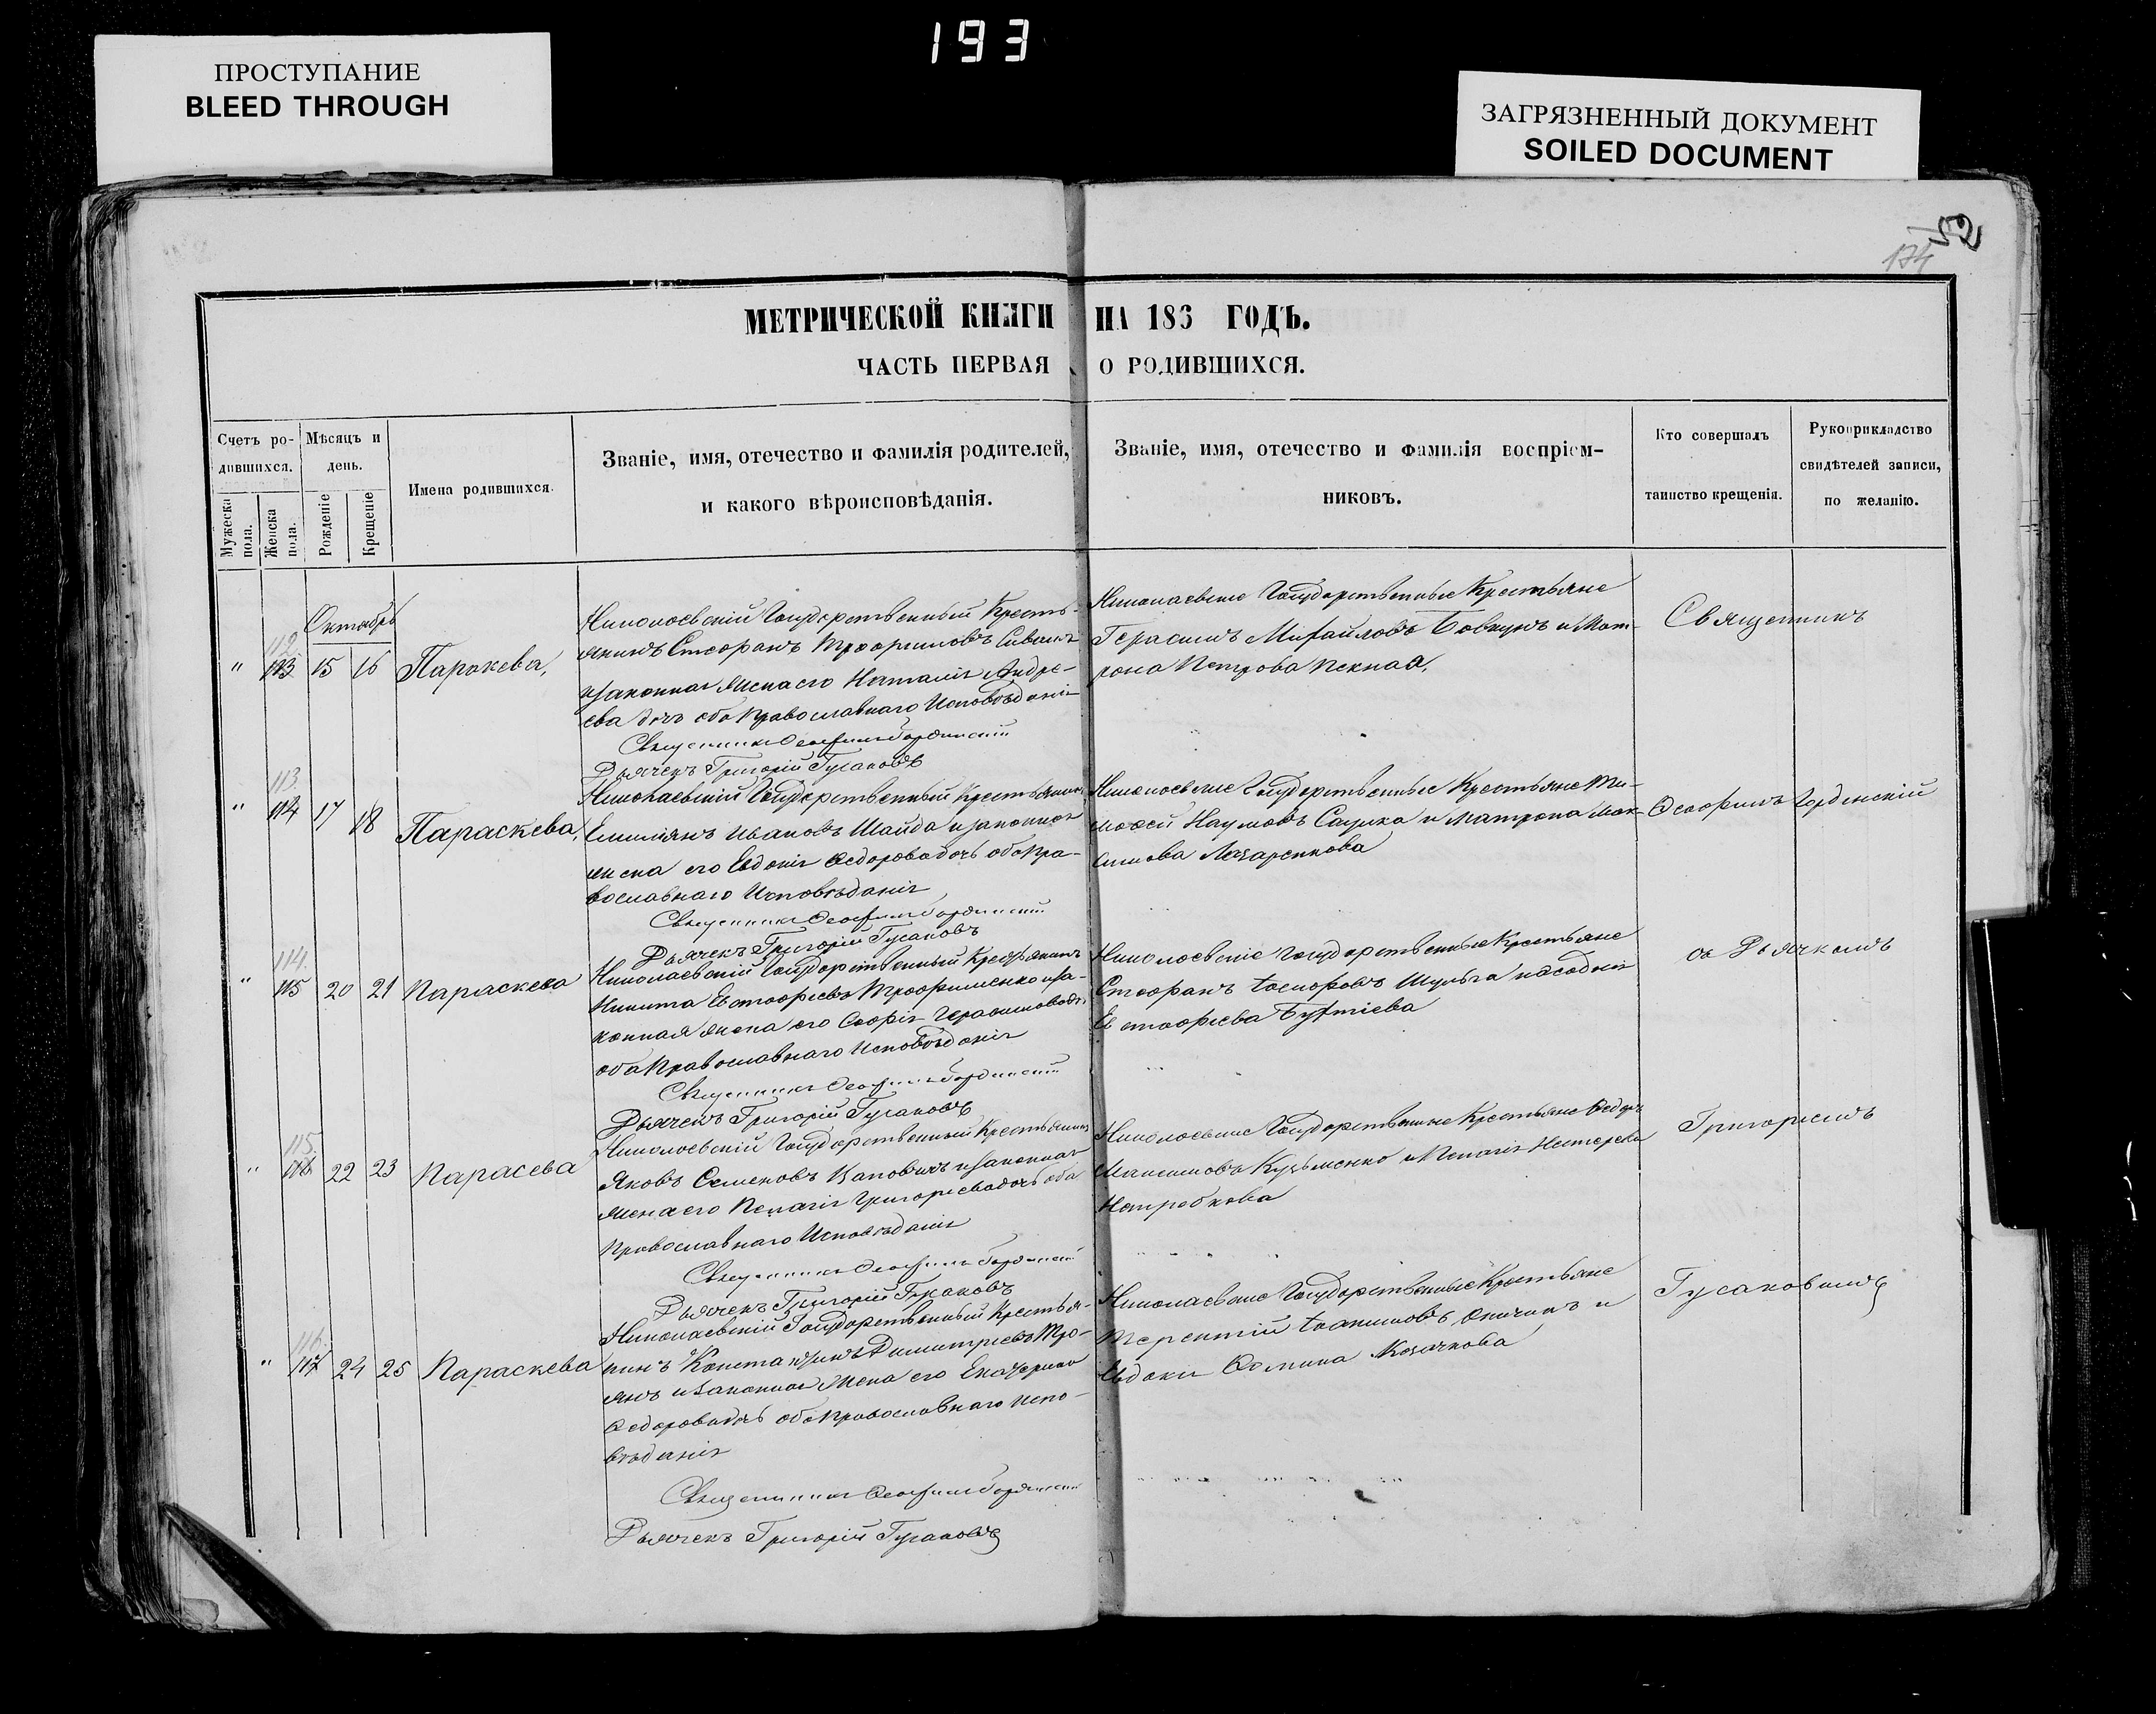 193
ПРОСТУПАНИЕ
BLEED THROUGH
ЗАГРЯЗНЕННЫЙ ДОКУМЕНТ
SOILED DOCUMENT
52
174
МЕТРИЧЕСКОЙ КНИГИ НА 186 ГОДЪ.
ЧАСТЬ ПЕРВАЯ О РОДИВШИХСЯ.
Счетъ ро-
дившихся.
Мужеска пола.
Женска пола.
Мѣсяцъ и
день.
Рожденіе
Крещеніе
Имена родившихся.
Званіе, имя, отечество и фамилія родителей,
и какого вѣроисповѣданія.
Званіе, имя, отечество и фамилія воспріем-
никовъ.
Кто совершалъ
таинство крещенія.
Рукоприкладство
свидѣтелей записи,
по желанію.
Октябрь
112
" 113 15 16 Паракева,
Николаевскій Государственный Кресть-
янинъ Стефанъ Трофимовъ
и законная жена его Наталія Андре-
ева дочь оба Православнаго Исповѣданія
Священникъ Феофилъ
Дьячекъ Григорій Гусаковъ
Николаевские Государственные Крестьяне
Герасимъ Михайловъ Бовкунъ и Мат-
рона Петрова Пекная,
Священникъ
113
" 114 17 18 Параскева,
Николаевскій Государственный Крестьянинъ
Емилианъ Ивановъ Шайда и законная
жена его Евдокія Федорова дочь оба Пра-
вославнаго Исповѣданія
Священникъ Феофилъ
Дьячекъ Григорій Гусаковъ
Николаевские Государственные Крестьяне Ти-
мофей Наумовъ и Матрона Мак-
симова Лазаренкова
Феофилъ
114
" 115 20 21 Параскева
Николаевскій Государственный Крестьянинъ
Никита Евстафіевъ Трофименко и за-
конная жена его Софія Герасимова дочь
оба Православнаго Исповѣданія
Священникъ Феофилъ
Дьячекъ Григорій Гусаковъ
Николаевскіе Государственные Крестьяне
Стефанъ Іосифовъ Шульга
Евстафіева
съ Дьячкомъ
115
" 116 22 23 Парасева
Николаевскій Государственный Крестьянинъ
Яковъ Семеновъ и законная
жена его Пелагія Григориева дочь оба
Православнаго Исповѣданія
Священникъ Феофилъ
Дьячекъ Григорій Гусаковъ
Николаевские Государственные Крестьяне Федоръ
Максимовъ Кузьменко и Пелагія Нестерова
Григориемъ
116
" 117 24 25 Параскева
Николаевскій Государственный Крестья-
нинъ Константинъ Димитріевъ Тро-
янъ и законная жена его Екатерина
Федорова дочь оба Православнаго Испо-
вѣданія
Священникъ Феофилъ
Дьячекъ Григорій Гусаковъ
Николаевские Государственные Крестьяне
Терентій Іоакимовъ и
Фомина Козачкова
Гусаковымъ